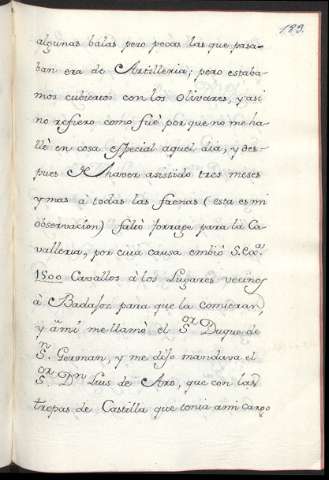 189.
algunas balas pero pocas las que pasa-
ban era de Artilleria; pero estaba-
mos cubiertos con los Olivares, y asi
no refiero como fuè por que no me ha-
llè en cosa especial aquel dia; y des-
pues de haver asistido tres meses
y mas à todas las faenas (esta es mi
observacion) faltò forrage para la Ca-
valleria, por cuia causa embiò S. Exª.
1500 Cavallos à los Lugares vecinos
à Badajoz para que la comieran,
y àmi me llamò el Sºr Duque de
Sn. German, y me dijo mandava el
Sºr Dn Luis de Aro, que con las
tropas de Castilla que tenia a mi cargo